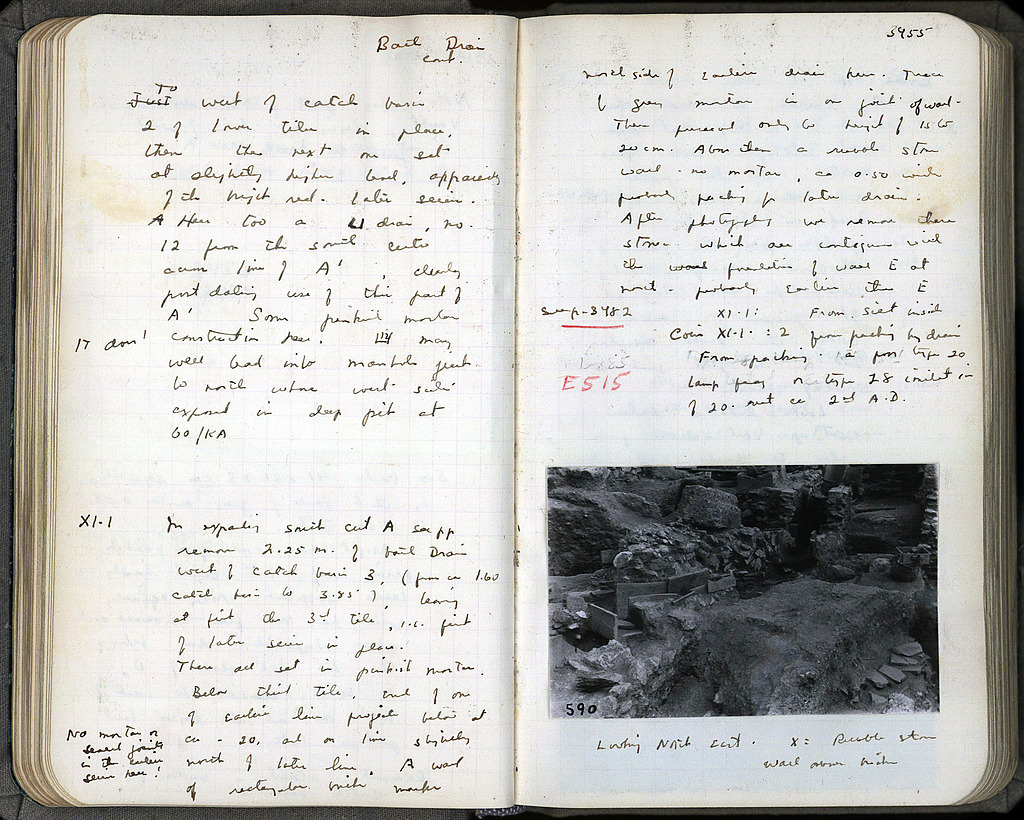 Bath Drain
cont.
To
west of catch basin
2 of lower tiles in place,
then the next one set
at slightly higher level, apparently
of the bright red. Later series.
A Here too a drain, no.
12 from the south cuts
across line of A' , clearly
post dating use of this part of
A' Some pinkish mortar
construction here. may
well lead into manhole just
to north whose west side
exposed in deep pit at
60/KA
XI-1
In expanding south cut A we
remove 2.25 m. of bath Drain
west of catch basin 3, (from ca 1.60
catch basin to 3.85), leaving
at first the 3rd tile, i.e. first
of later series in place.
These all set in pinkish mortar.
Below third tile, end of one
of earlier line projects below at
ca -.20, and on line slightly
north of later line. A wall
of rectangular bricks marks
No mortar or
sealed joints
in the earlier
series here!
5955
north side of earlier drain here. Trace
of grey mortar in one joint of wall.
These preserved only to height of 15 to
20 cm. Above them a rubble stone
wall - no mortar, ca 0.50 wide
probably packing for later drain.
After photography we remove these
stones which are contiguous with
the foundation of wall E at
north - probably earlier than E
XI-1: From silt inside
Coin XI-1 : 2 from packing by drain
From packing: a poss. type 20
lamp frag or type 28 imitation
of 20. not ca 2nd A.D.
E515
590
Looking North East. X = Rubble stone
wall over bricks